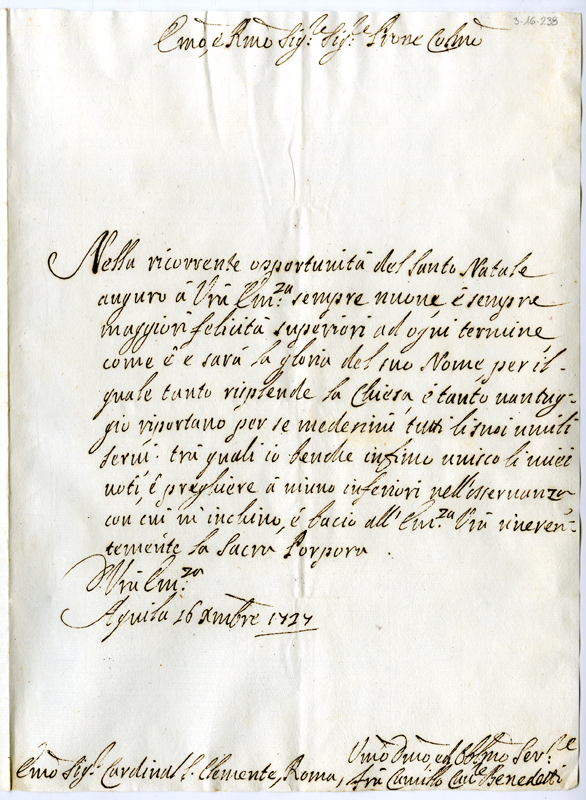 3-16-238
Emo, e Rmo Sig.re Sig.re Prone Colmo
Nella ricorrente opportunità del Santo Natale
auguro à Vrà Em.za sempre nuoue, è sempre
maggiori felicità superiori ad ogni termine,
come è e sarà la gloria del suo Nome, per il-
quale tanto risplende la Chiesa è tanto uantag-
gio riportano per se medesimi tutti li suoi umili
serui. trà quali io benche infimo unisco li miei
uoti, è preghiere à niuno inferiori nell'osseruanza
con cui m'inchino, è bacio all'Em.za Vrà riueren-
temente la Sacra Porpora.
D. Vrà Em.za
Aquila 16 Xmbre 1727
Vmo Dmo, ed Obmo Ser.re
Emo Sig.r Cardinal S. Clemente, Roma, frà Camillo Benedetti